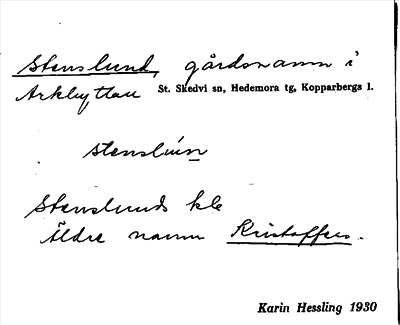 Stenslund, gårdsnamn i
Arkhyttan St. Skedvi sn, Hedemora tg, Kopparbergs l.
stenslún
Stenslunds kle
Äldre namn Kristoffers.
Karin Hessling 1930